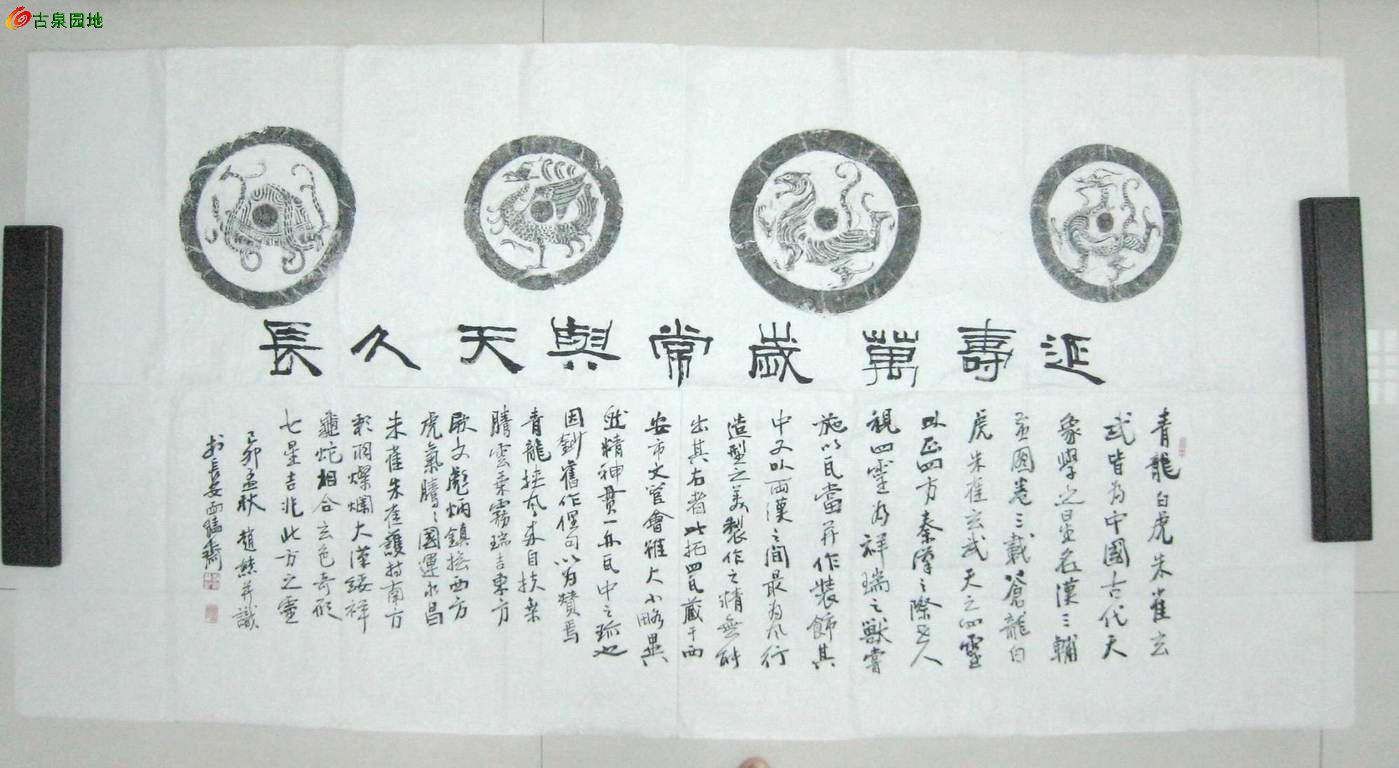 古泉园地
延壽萬歲常與天久長
青龍白虎朱雀玄
武皆為中國古代天
象學之星名漢三輔
黃圖卷三載蒼龍白
虎朱雀玄武天之四靈
以正四方秦漢之際世人
視四靈為祥瑞之獸嘗
施以瓦當并作裝飾其
中又以西漢之間最為風行
造型之美製作之精無能
出其右者此拓四瓦藏于西
安市文管會雖大小略異
然精神貫一為瓦中之珍也
因鈔舊作俚句以為贊焉
青龍挂風來自扶桑
騰雲乘霧瑞吉東方
厥文彪炳鎮按西方
虎氣騰騰國運永昌
朱雀朱雀護持南方
彩羽燦爛大漢綏祥
龜蛇相合玄色奇形
七星吉兆北方之靈
己卯孟秋趙熊并識
於長安西